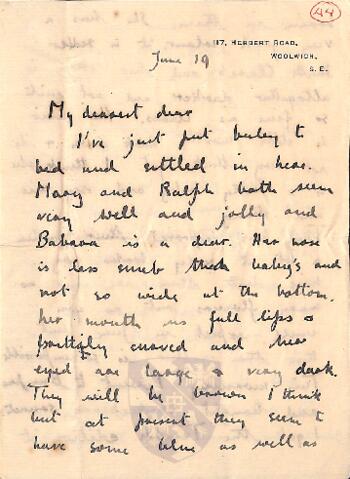 44
117, HERBERT ROAD,
WOOLWICH,
S. E.
June 19
My dearest dear
I've just put baby to
bed and settled in here.
Mary and Ralph both seem
very well and jolly and
Babara is a dear. Her nose
is less snub than baby's and
not so wide at the bottom,
her mouth is full lips &
prettily curved and her
eyes are large & very dark.
They will be brown I think
but at present they seem to
have some blue as well as